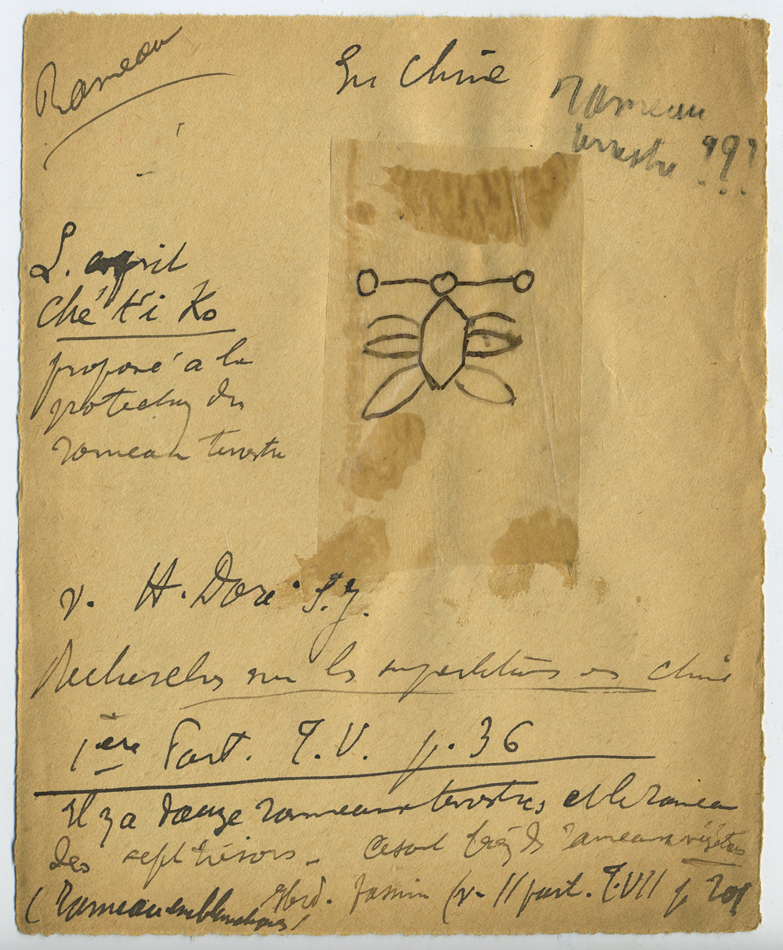 Rameau
En Chine
Rameau
terrestre ???
L'esprit
Ché Ki Ko
préposé à la
protection du
rameau terrestre
v. H. Doré S.J.
Recherches sur les superstitions en Chine
1ère Part. T.V. p. 36
Il y a douze rameaux terrestres et le rameau
des sept trésors - Ce sont des rameaux
(Rameau Ibid. (v. II part. T.VII p. 201